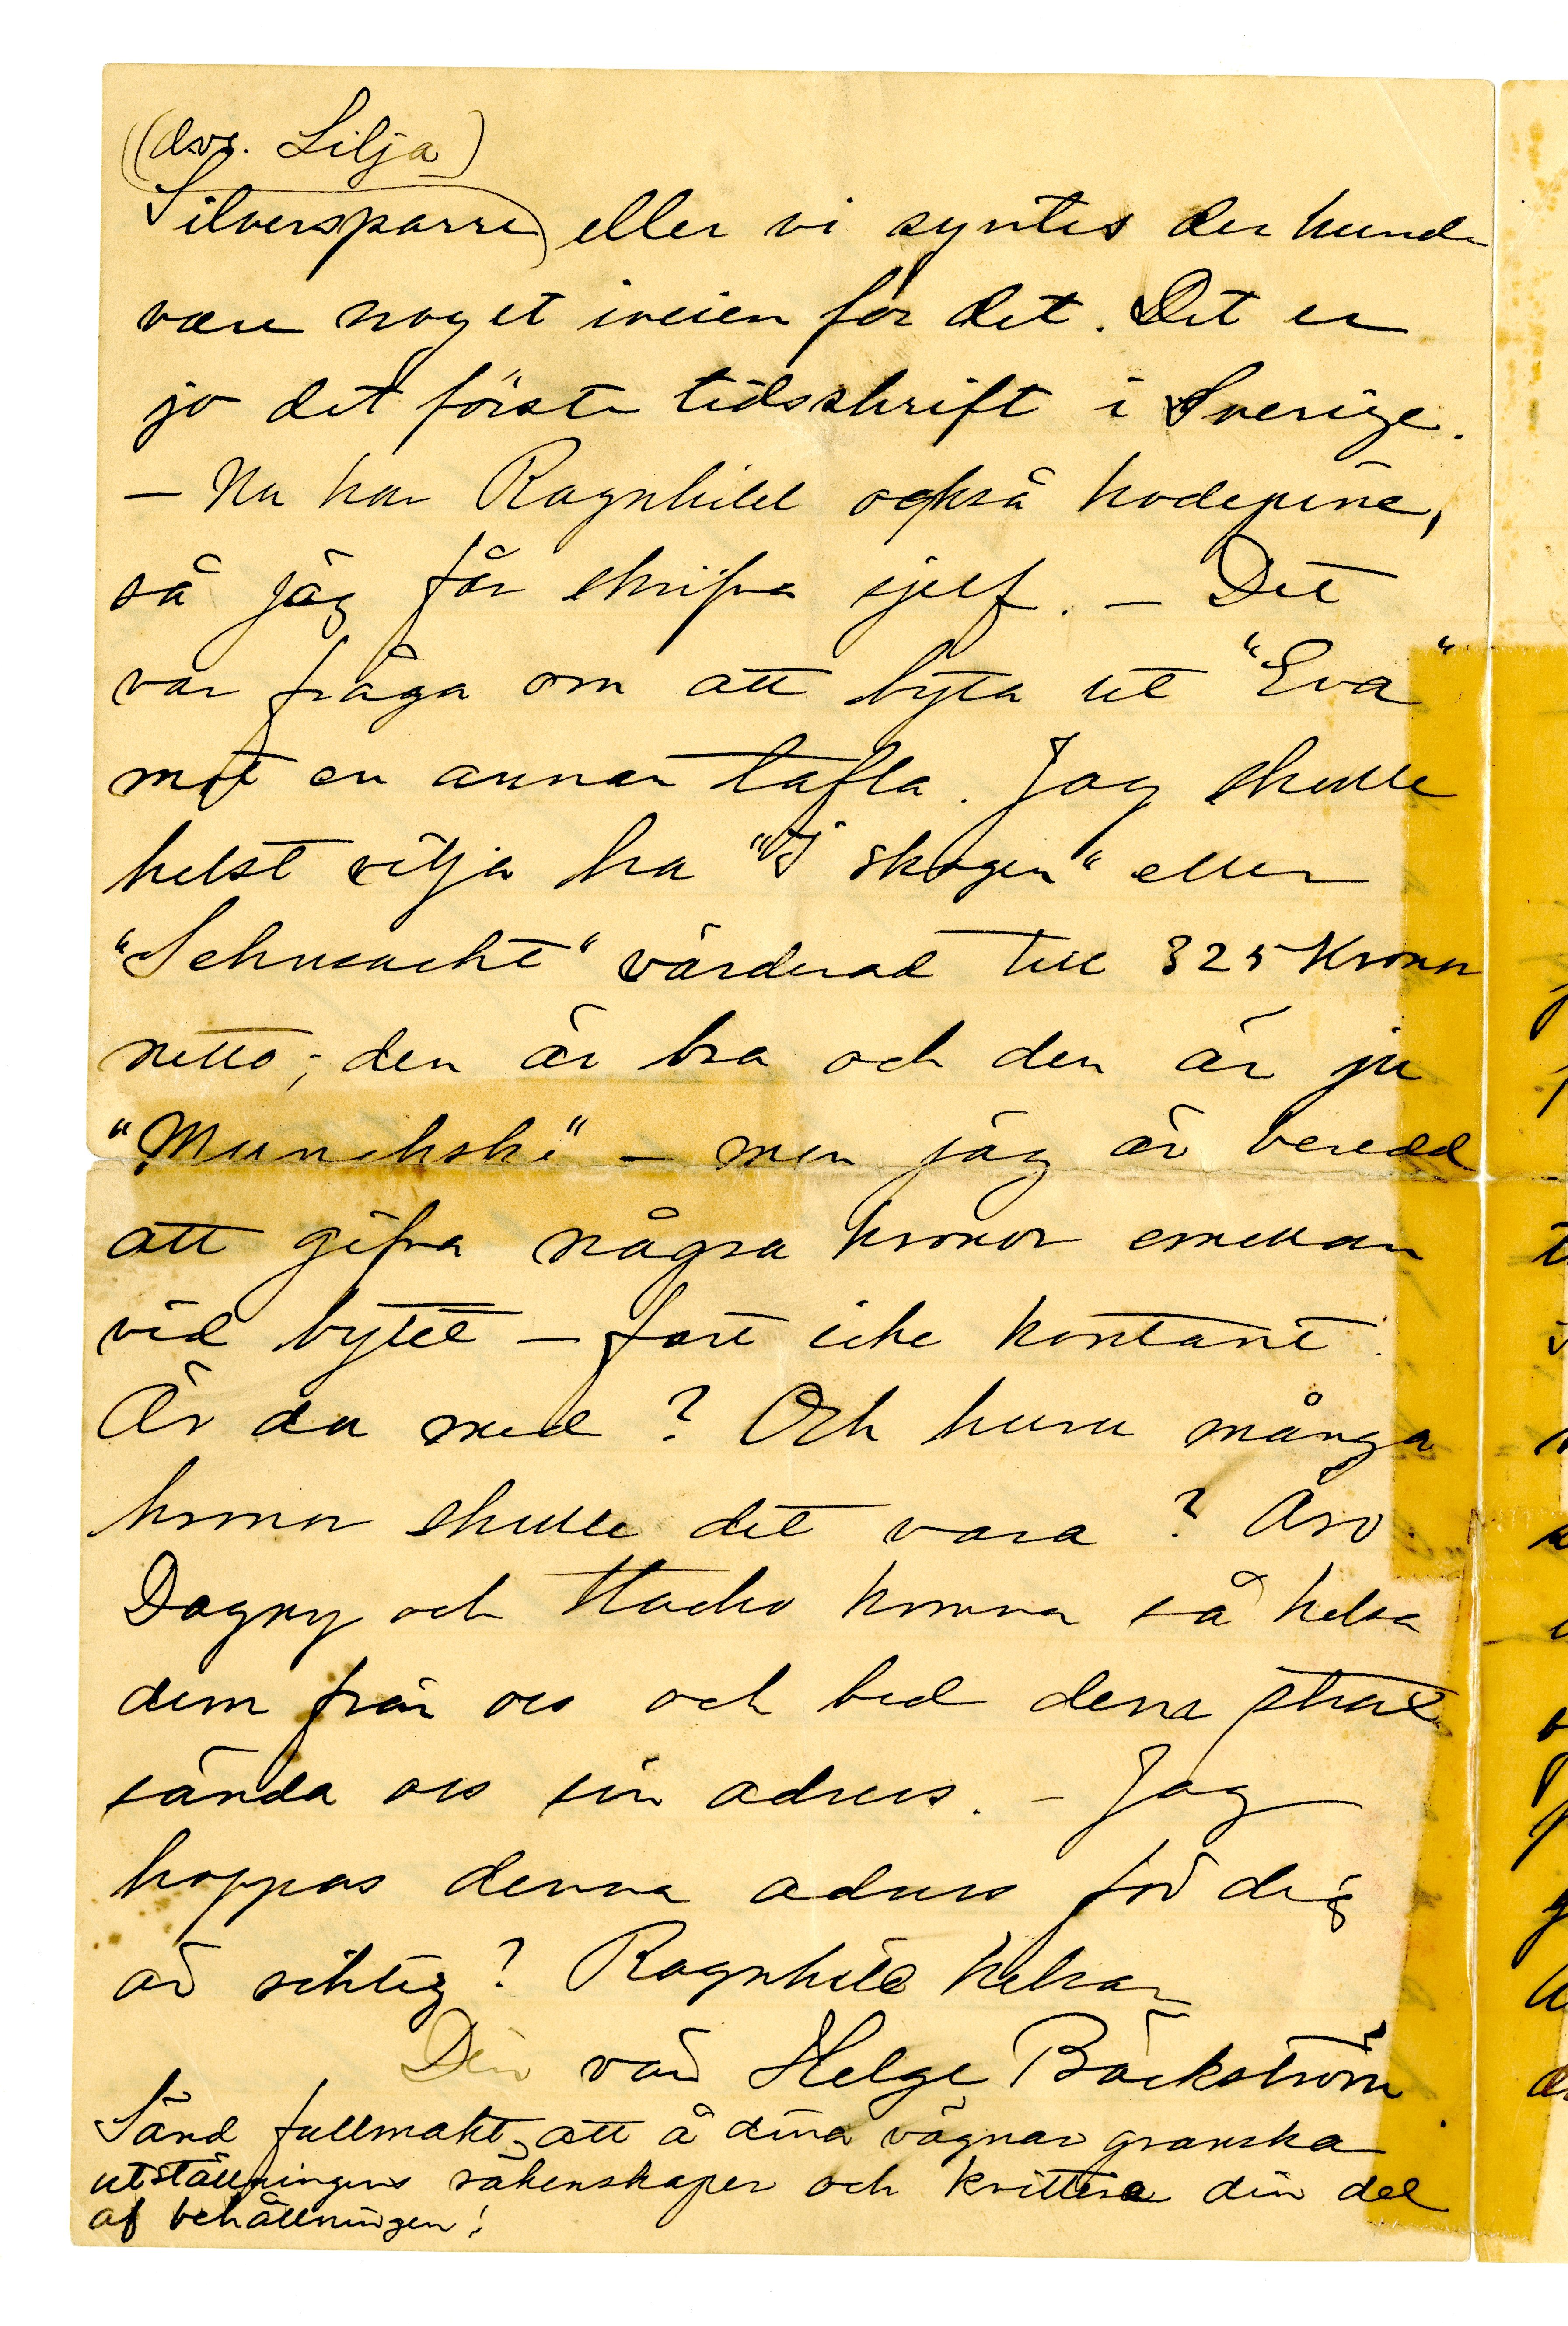 (dvs. Lilja)
Silversparre) eller vi syntes der kunde
være noget iveien for det. Det er
jo det förste tidsskrift i Sverige.
— Nu har Ragnhild också hodepine,
så jag får skrifva sjelf. — Det
var fråga om att byta ut "Eva"
mot en annan tafla. Jag skulle
helst vilja ha "I skogen" eller
"Sehnsucht" värderad till 325 Kronor
netto; den är bra och den är ju
"Munchsk" — men jag är beredd
att gifva några kronor emellan
vid bytet — fast icke kontant.
Är du med? Och huru många
kronor skulle det vara? Om
Dagny och Stachu komma så helsa
dem från oss och bed dem strax
sända oss sin adress. — Jag
hoppas denna adress för dig
är riktig? Ragnhild helsar
Din vän Helge Bäckström.
Sänd fullmakt, att å dina vägnar granska
utställningens räkenskaper och kvittera din del
af behållningen!